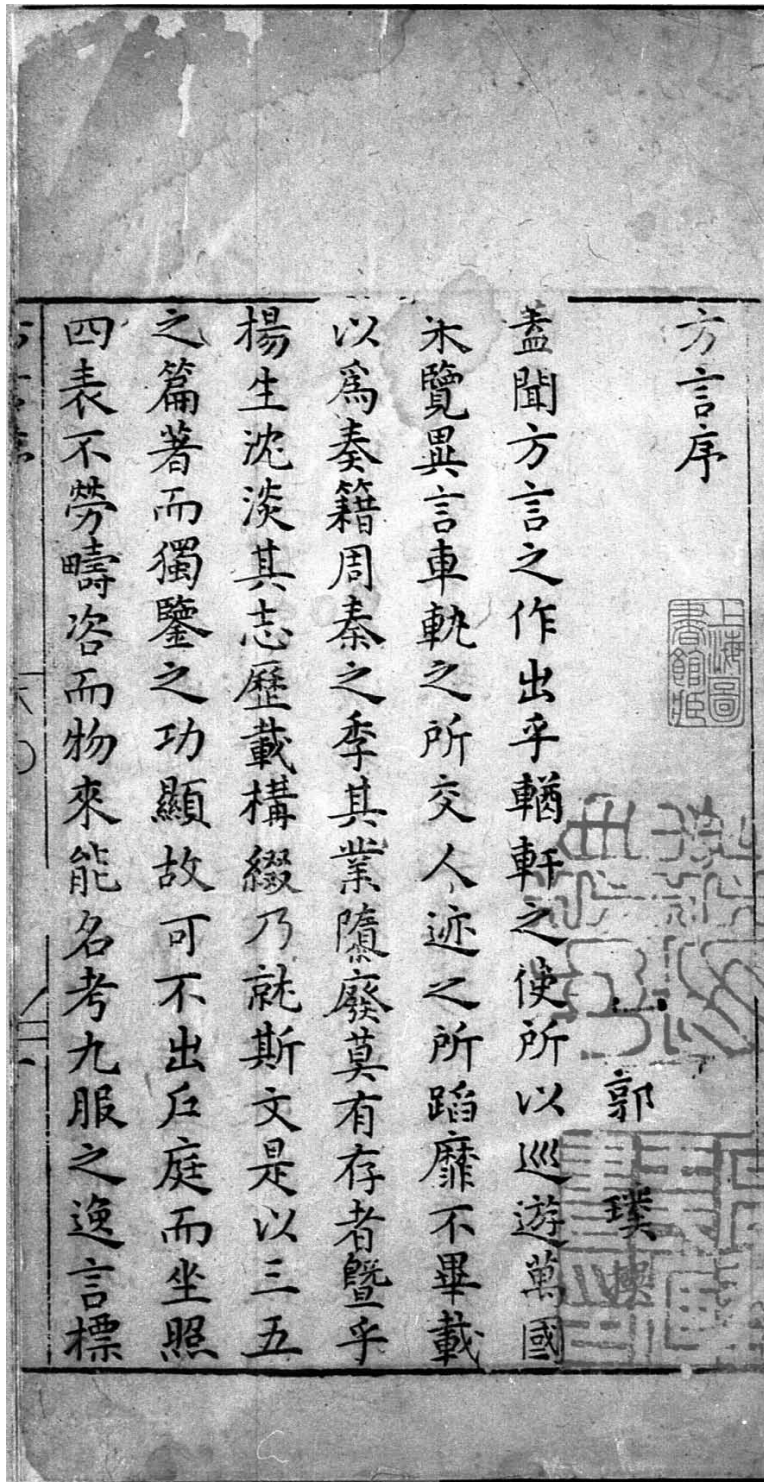 方言序
郭璞撰
蓋聞方言之作出乎輶軒之使所以巡遊萬國
采覽異言車軌之所交人迹之所蹈靡不畢載
以爲奏籍周秦之季其業隳廢莫有存者曁乎
楊生沈淡其志歷載構綴乃就斯文是以三五
之篇著而獨鑒之功顯故可不出戶庭而坐照
四表不勞疇咨而物來能名考九服之逸言標
上海圖
書館臧